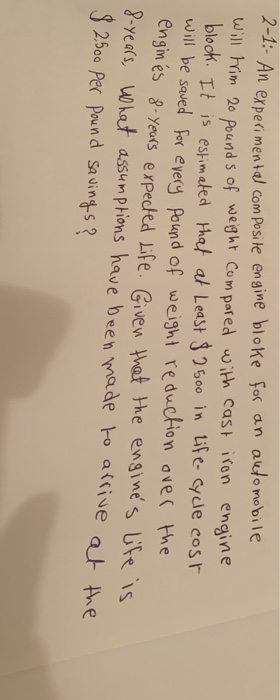 2-1:- An experimental composite engine bloke for an automobile
will trim 20 Pounds of weght Compared with cast iron engine
block. It is estimated that at Least $ 2500 in Life-cycle cost
will be saved for every Pound of weight reduction over the
engine's 8-years expected Life. Given that the engine's life is
8-years, What assumptions have been made to arrive at the
$ 2500 per pound savings?